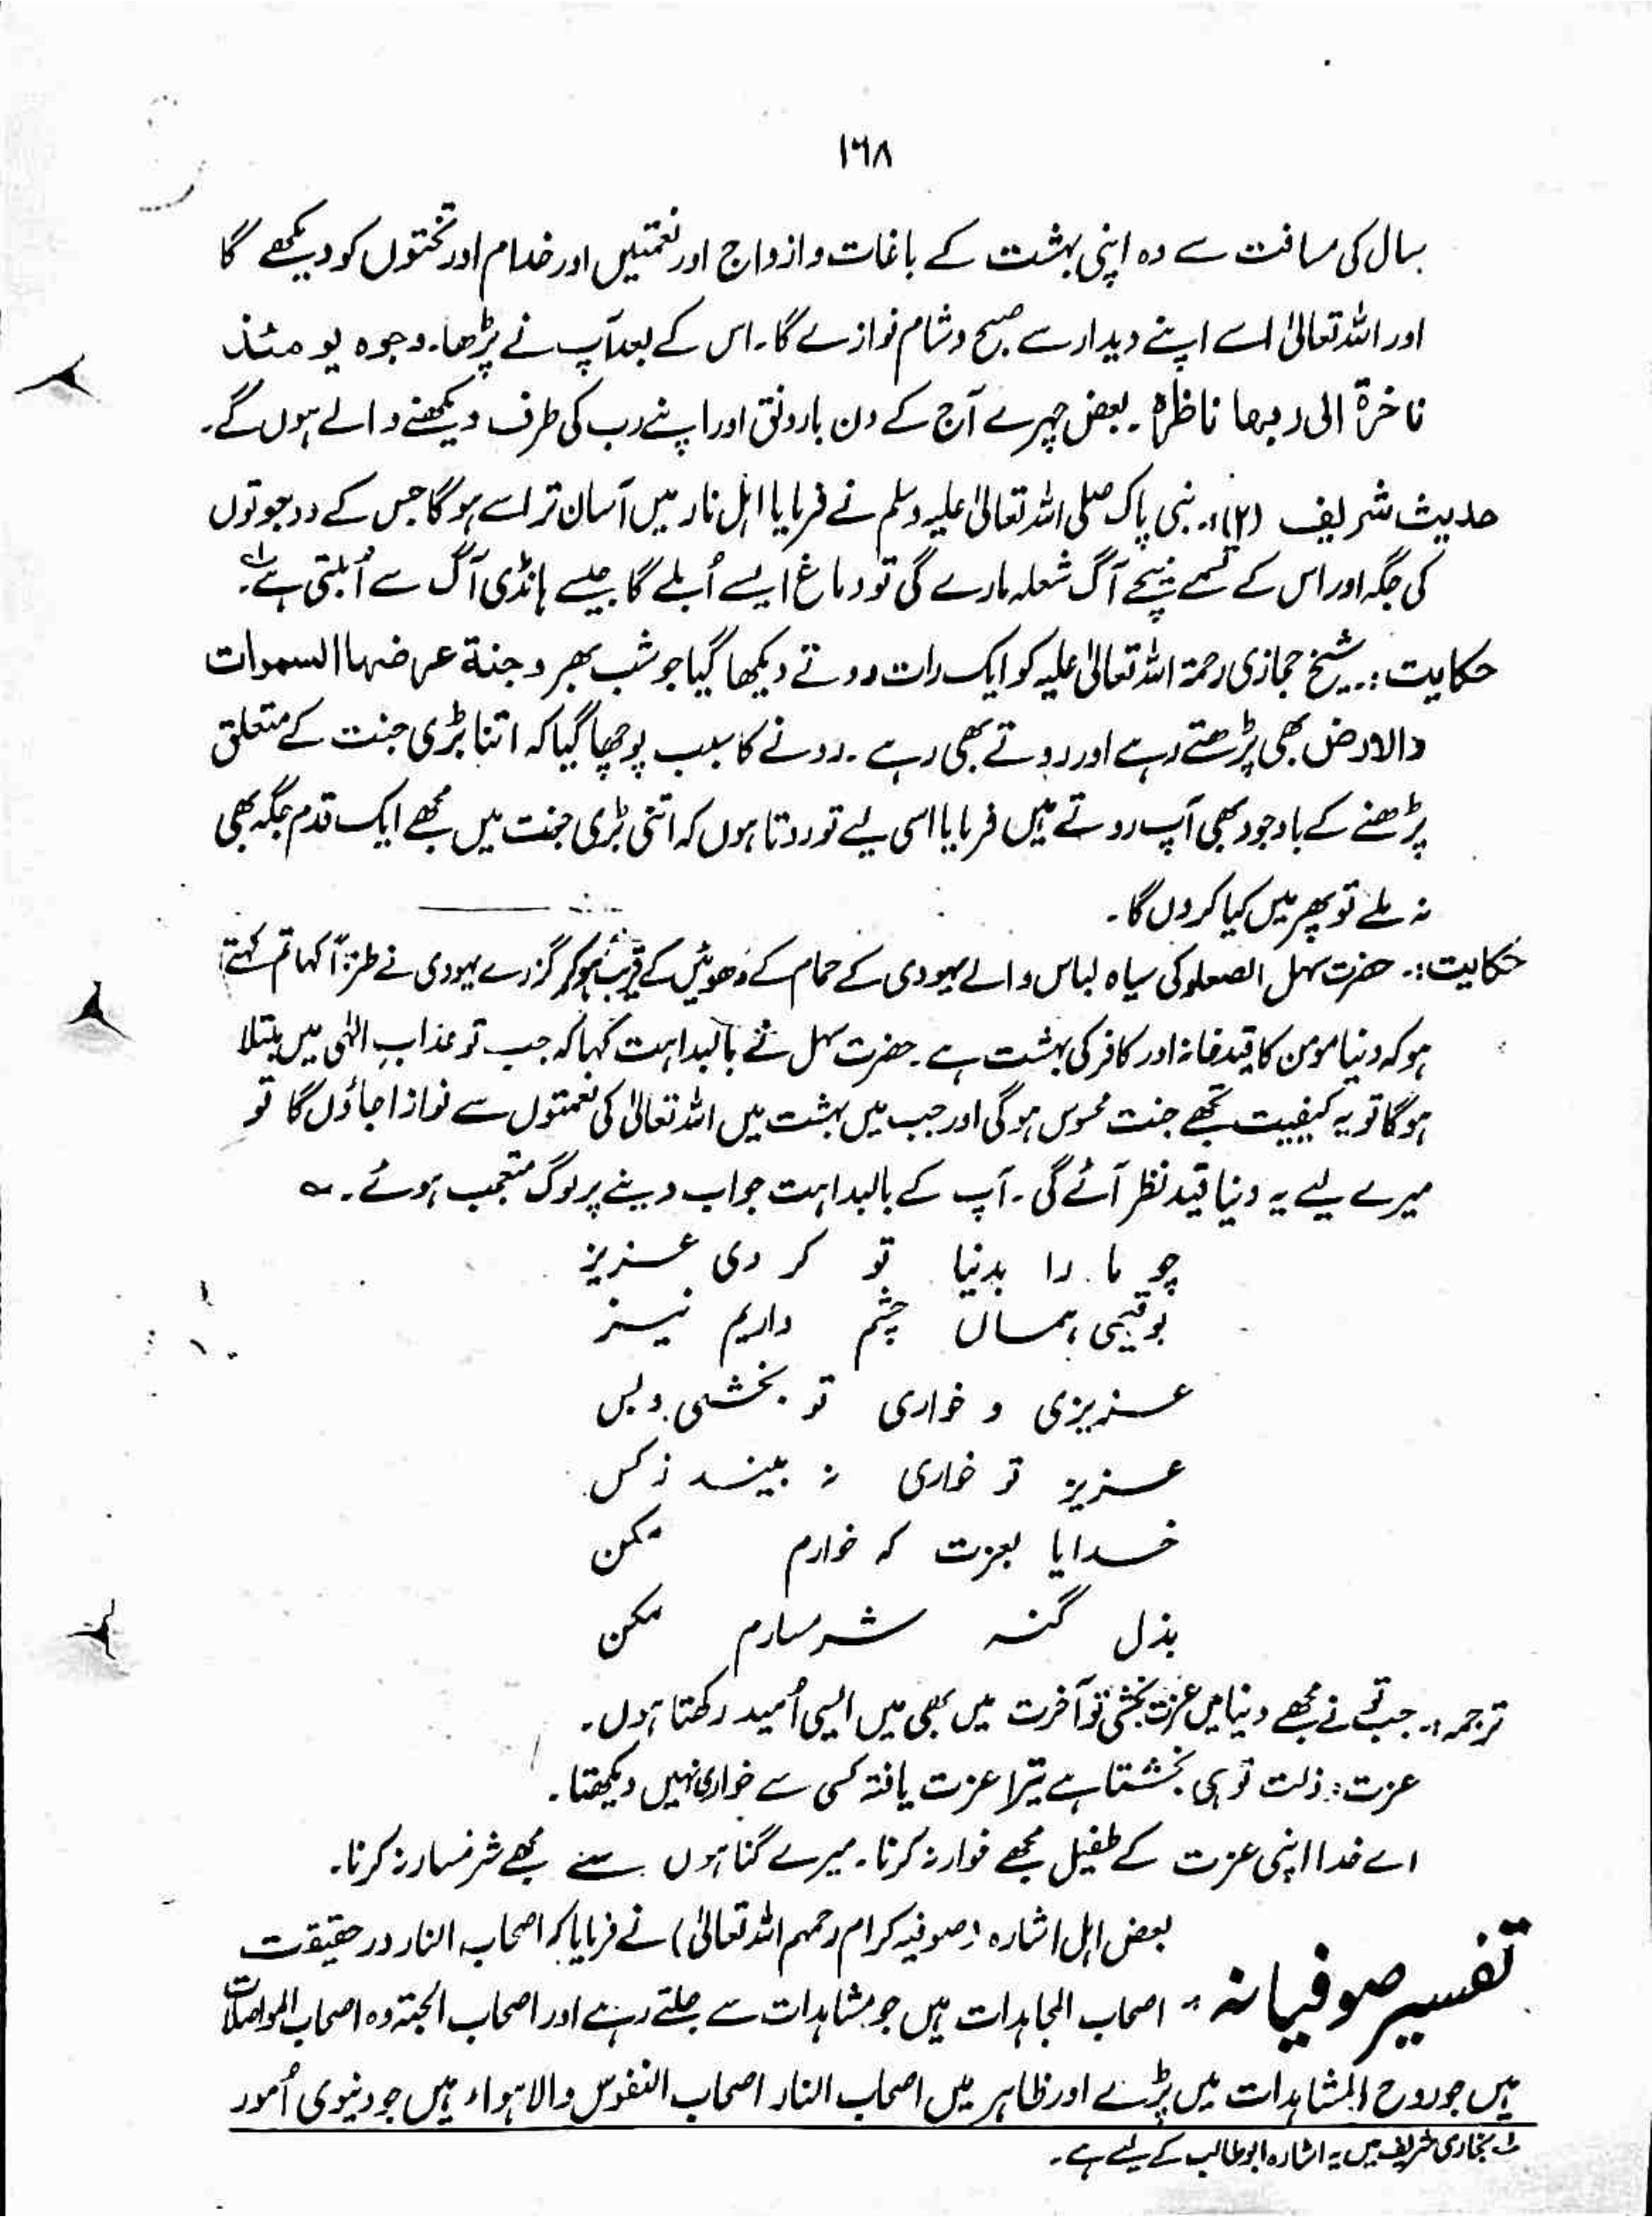 ۱۶۸
سال کی مسافت سے وہ اپنی بہشت کے باغات و ازواج اور نعمتیں اور خدام اور تختوں کو دیکھے گا
اور اللہ تعالیٰ اسے اپنے دیدار سے صبح و شام نوازے گا۔ اس کے بعد آپ نے پڑھا۔ وجوہ یومئذ
ناخرۃ الی ربھا ناظرہ۔ بعض چہرے آج کے دن بارونق اور اپنے رب کی طرف دیکھنے والے ہوں گے۔
حدیث شریف (۲):۔ نبی پاک صلی اللہ تعالیٰ علیہ وسلم نے فرمایا اہل نار میں آسان تر اسے ہوگا جس کے دو جوتوں
کی جگہ اور اس کے تسمے نیچے آگ شعلہ مارے گی تو دماغ ایسے اُبلے گا جیسے ہانڈی آگ سے اُبلتی ہے۔ ؎۱
حکایت:۔ شیخ حجازی رحمۃ اللہ تعالیٰ علیہ کو ایک رات روتے دیکھا گیا جو شب بھر وجنۃ عرضہا السموات
والارض بھی پڑھتے رہے اور روتے بھی رہے۔ رونے کا سبب پوچھا گیا کہ اتنا بڑی جنت کے متعلق
پڑھنے کے باوجود بھی آپ روتے ہیں فرمایا اسی لیے تو روتا ہوں کہ اتنی بڑی جنت میں مجھے ایک قدم جگہ بھی
نہ ملے تو پھر میں کیا کروں گا۔
حکایت:۔ حضرت سہل الصعلوکی سیاہ لباس والے یہودی کے حمام کے دھوئیں کے قریب ہوکر گزرے یہودی نے طنزاً کہا تم کہتے
ہو کہ دنیا مومن کا قید خانہ اور کافر کی بہشت ہے۔ حضرت سہل نے بالبداہت کہا کہ جب تو عذاب الٰہی میں مبتلا
ہوگا تو یہ کیفیت تجھے جنت محسوس ہوگی اور جب میں بہشت میں اللہ تعالیٰ کی نعمتوں سے نوازا جاؤں گا تو
میرے لیے یہ دنیا قید نظر آئے گی۔ آپ کے بالبداہت جواب دینے پر لوگ متعجب ہوئے۔ ؎
چو ما را بدنیا تو کردی عزیز
بعقبیٰ ہماں چشم داریم نیز
عزیزی و خواری تو بخشی و بس
عزیز تو خواری نہ بیند ز کس
خدایا بعزت کہ خوارم مکن
بذل گنہ شرمسارم مکن
ترجمہ:۔ جب تو نے مجھے دنیا میں عزت بخشی تو آخرت میں بھی میں ایسی اُمید رکھتا ہوں۔
عزت: ذلت تو ہی بخشتا ہے تیرا عزت یافتہ کسی سے خواری نہیں دیکھتا۔
اے خدا اپنی عزت کے طفیل مجھے خوار نہ کرنا۔ میرے گناہوں سے مجھے شرمسار نہ کرنا۔
بعض اہل اشارہ (صوفیہ کرام رحمہم اللہ تعالیٰ) نے فرمایا کہ اصحاب النار در حقیقت
تفسیر صوفیانہ :۔ اصحاب المجاہدات ہیں جو مشاہدات سے جلتے رہے اور اصحاب الجنۃ وہ اصحاب المواصلات
ہیں جو روح المشاہدات میں پڑے اور ظاہر میں اصحاب النار اصحاب النفوس والاہواء ہیں جو دنیوی اُمور
؎۱ بخاری شریف میں یہ اشارہ ابو طالب کے لیے ہے۔